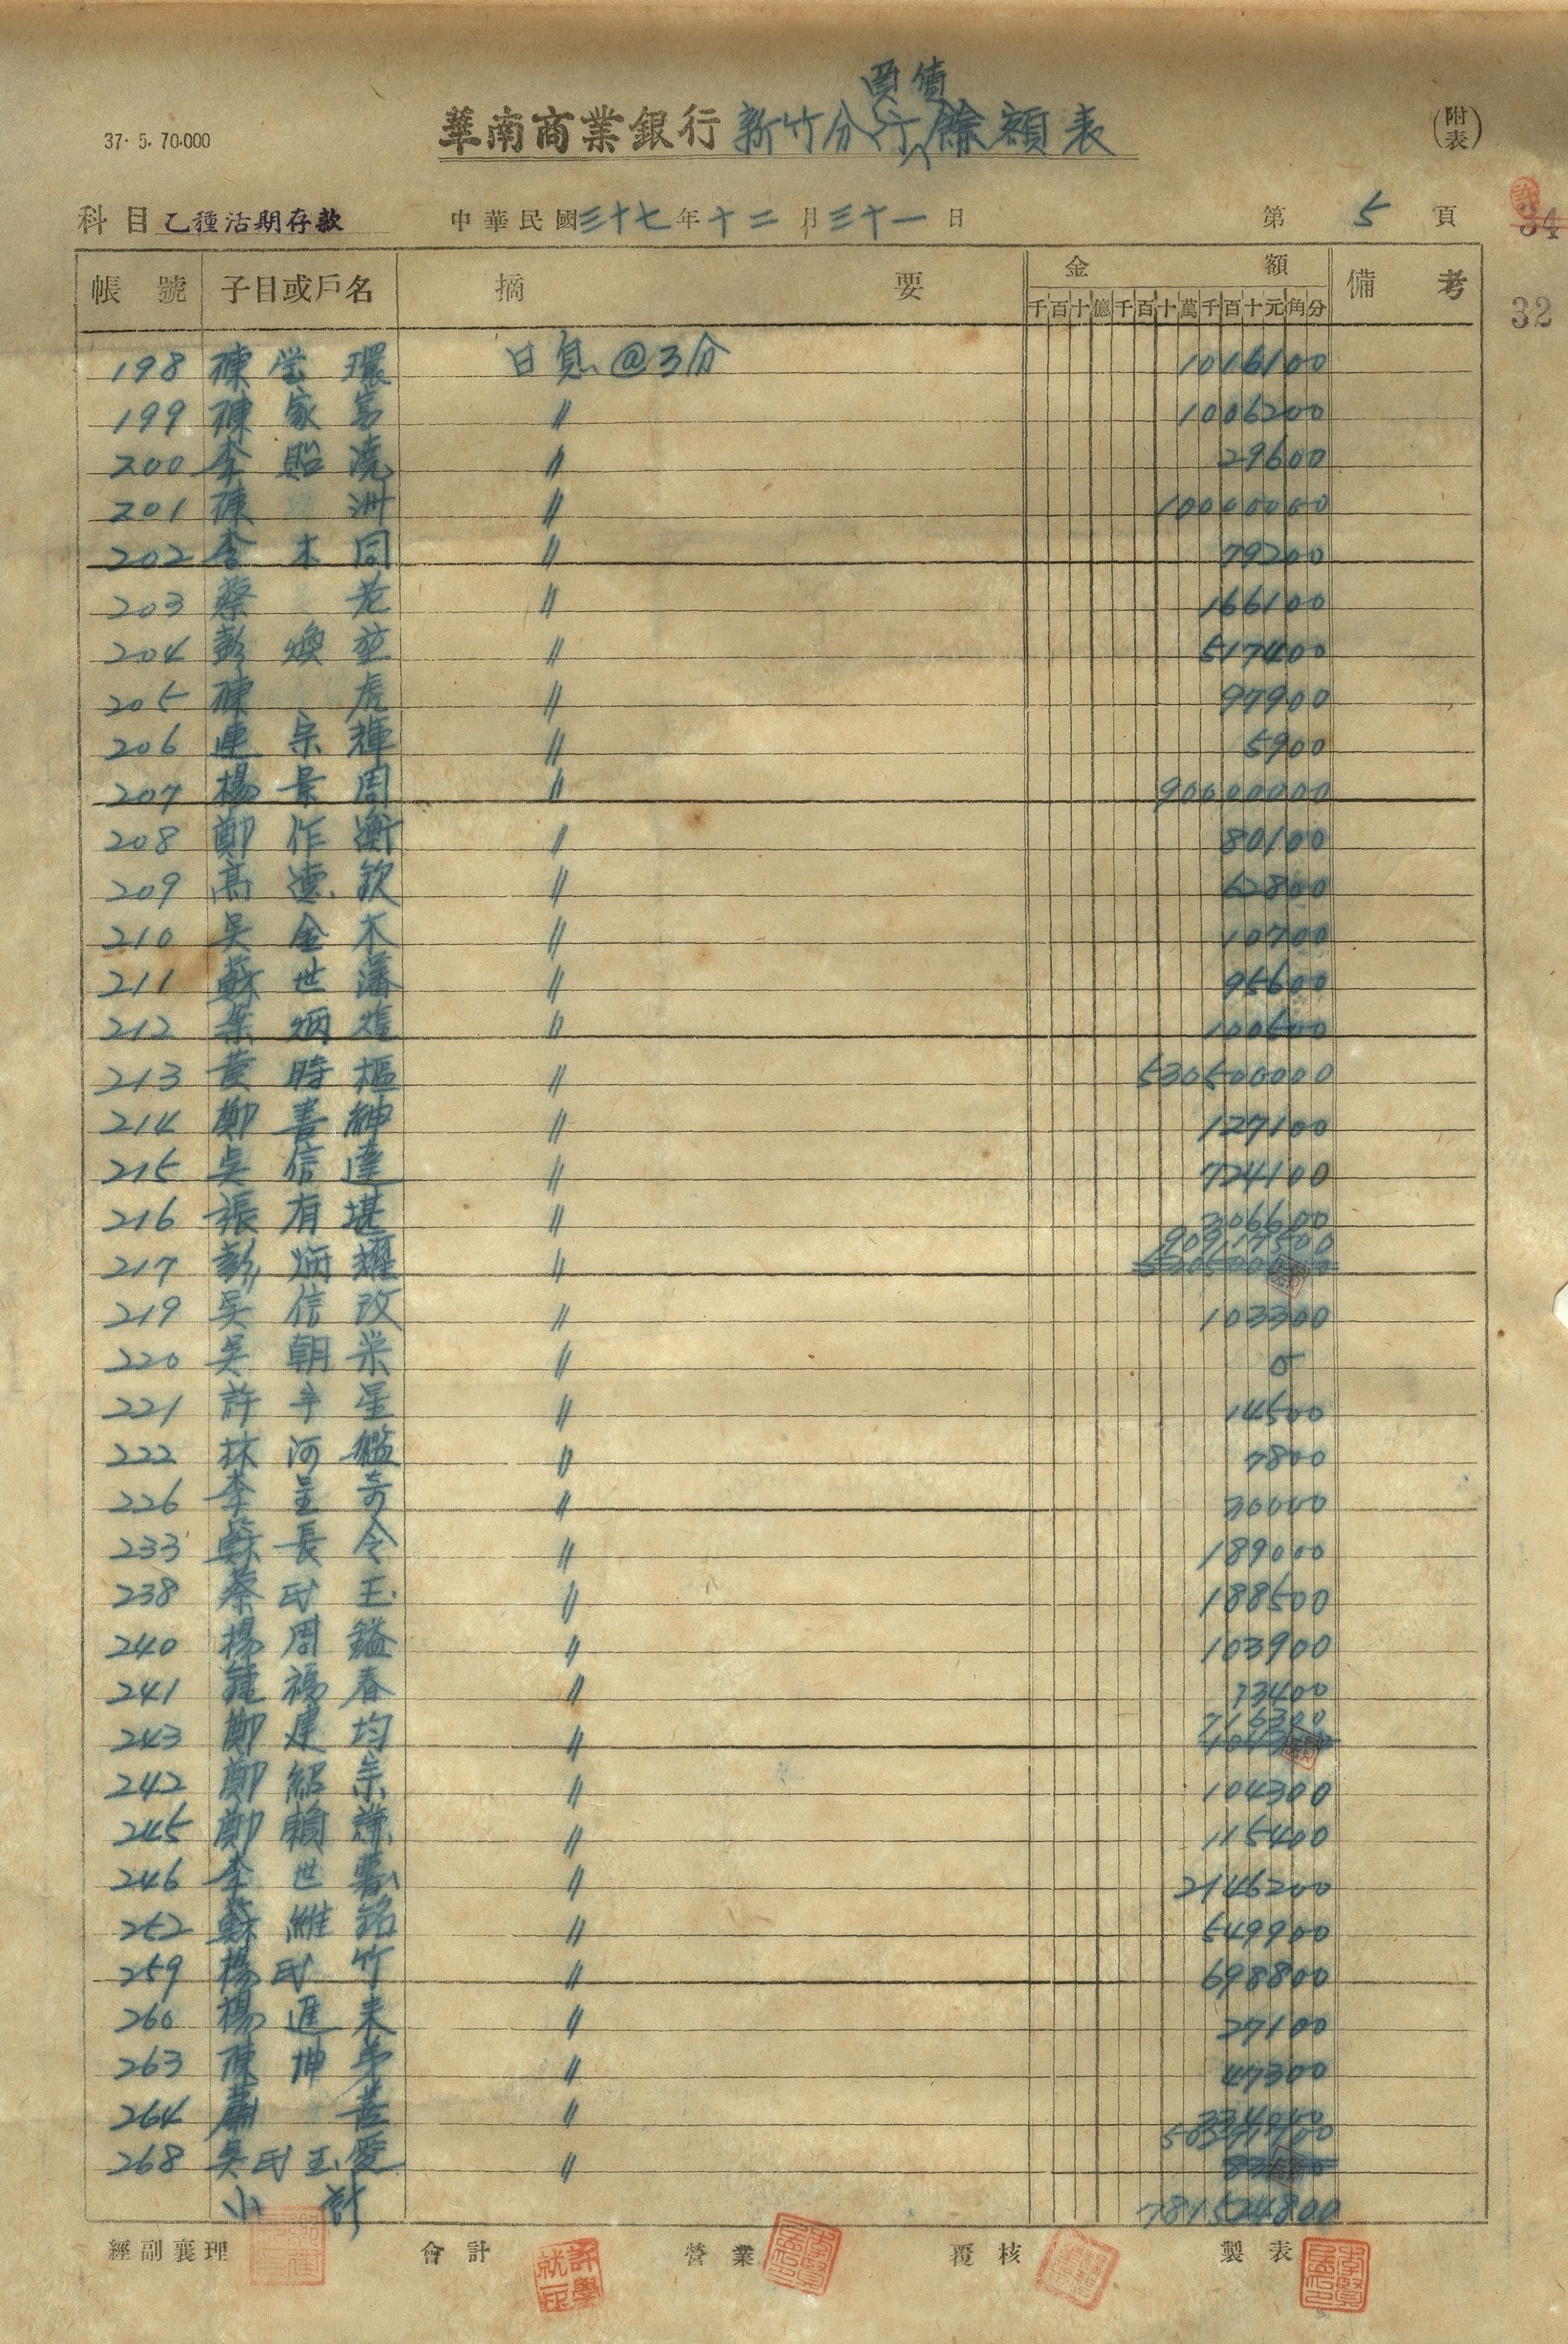 買債
37. 5. 70.000
華南商業銀行 新竹分行餘額表
(附表)
科目 乙種活期存款 中華民國三十七年十二月三十一日 第 5 頁
34
32
帳號 子目或戶名 摘要 金額 備考
千百十億千百十萬千百十元角分
198 陳 環 日息@3分 1016100
199 陳家 〃 1006200
200 李貽澆 〃 29600
201 陳洲 〃 10000000
202 李木同 〃 79200
203 蔡 〃 166100
204 彭煥 〃 517400
205 陳虎 〃 97900
206 連宗輝 〃 5900
207 楊景周 〃 90000000
208 鄭作衡 〃 80100
209 高德欽 〃 62800
210 吳金木 〃 10700
211 蘇世藩 〃 95600
212 葉炳煌 〃 100500
213 黃時樞 〃 530500000
214 鄭書紳 〃 127100
215 吳信達 〃 724100
216 張有堪 〃 306600
217 彭炳耀 〃 90917500
219 吳信改 〃 103300
220 吳朝栄 〃 0
221 許辛星 〃 14500
222 林河艦 〃 7800
226 李呈奇 〃 30000
233 蘇長令 〃 189000
238 蔡氏玉 〃 188500
240 楊周鎰 〃 103900
241 鍾福春 〃 73400
243 鄭建均 〃 716300
242 鄭紹宗 〃 104300
245 鄭賴 〃 115400
246 李世 〃 2146200
252 蘇維銘 〃 549900
259 楊氏竹 〃 698800
260 楊進来 〃 27100
263 陳坤弟 〃 47300
264 蕭 〃
268 吳氏玉愛 〃
小計 781524800
經副襄理 會計 營業 覆核 製表